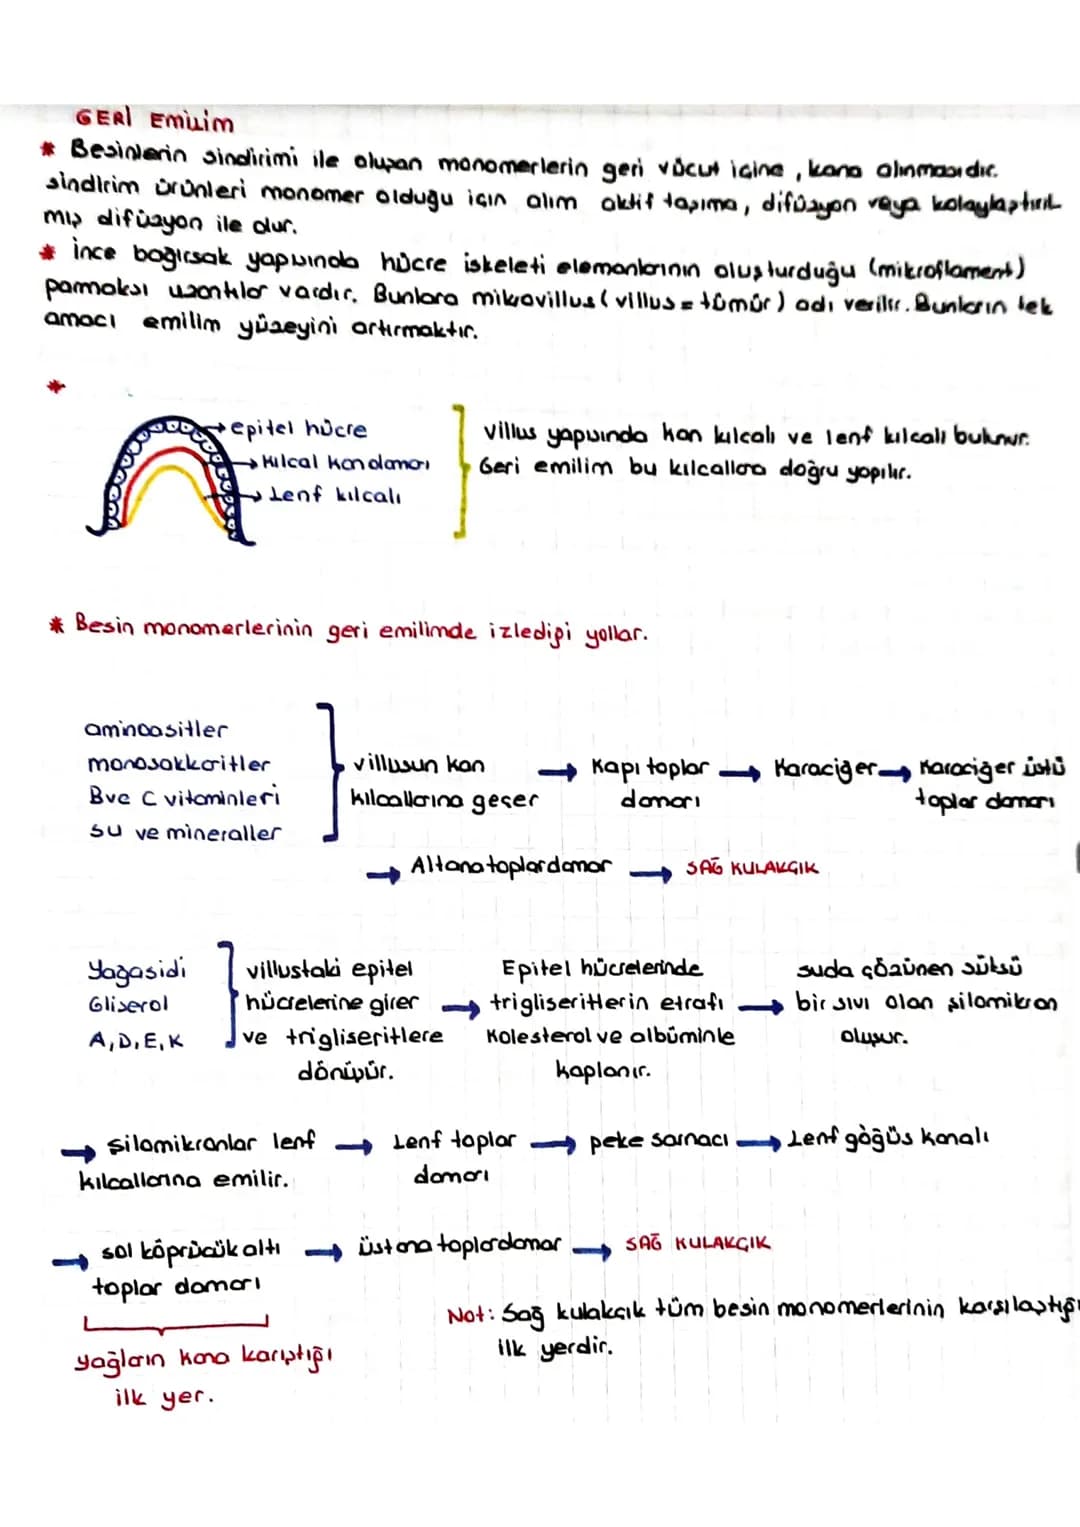 GERİ EMİLİM
* Besinlerin sindirimi ile oluşan monomerlerin geri vücut içine, kana alınmasıdır.
sindirim ürünleri monomer olduğu için alım aktif taşıma, difüzyon veya kolaylaştırıl
mış difüzyon ile olur.
* İnce bağırsak yapısında hücre iskeleti elemanlarının oluşturduğu (mikroflament)
parmaksı uzantılar vardır. Bunlara mikrovillus (villus = tümür) adı verilir. Bunların tek
amacı emilim yüzeyini artırmaktır.
*
→ epitel hücre
→ Kılcal kan damarı
→ Lenf kılcalı
villus yapısında kan kılcalı ve lenf kılcalı bulunur.
Geri emilim bu kılcallara doğru yapılır.
* Besin monomerlerinin geri emilimde izlediği yollar.
aminoasitler
monosakkaritler
B ve C vitaminleri
su ve mineraller
villusun kan → Kapı toplar → Karaciğer → Karaciğer üstü
kılcallarına geçer damarı toplar damarı
→ Alt ana toplardamar → SAĞ KULAKÇIK
Yağ asidi
Gliserol
A, D, E, K
villustaki epitel
hücrelerine girer →
ve trigliseritlere
dönüşür.
Epitel hücrelerinde
trigliseritlerin etrafı →
Kolesterol ve albüminle
kaplanır.
suda çözünen sütsü
bir sıvı olan şilomikron
oluşur.
→ şilomikronlar lenf → Lenf toplar → peke sarnacı → Lenf göğüs kanalı
kılcallarına emilir. damarı
→ sol köprücük altı → üst ana toplardamar → SAĞ KULAKÇIK
toplar damarı
yağların kana karıştığı
ilk yer.
Not: Sağ kulakçık tüm besin monomerlerinin karşılaştığı
ilk yerdir.